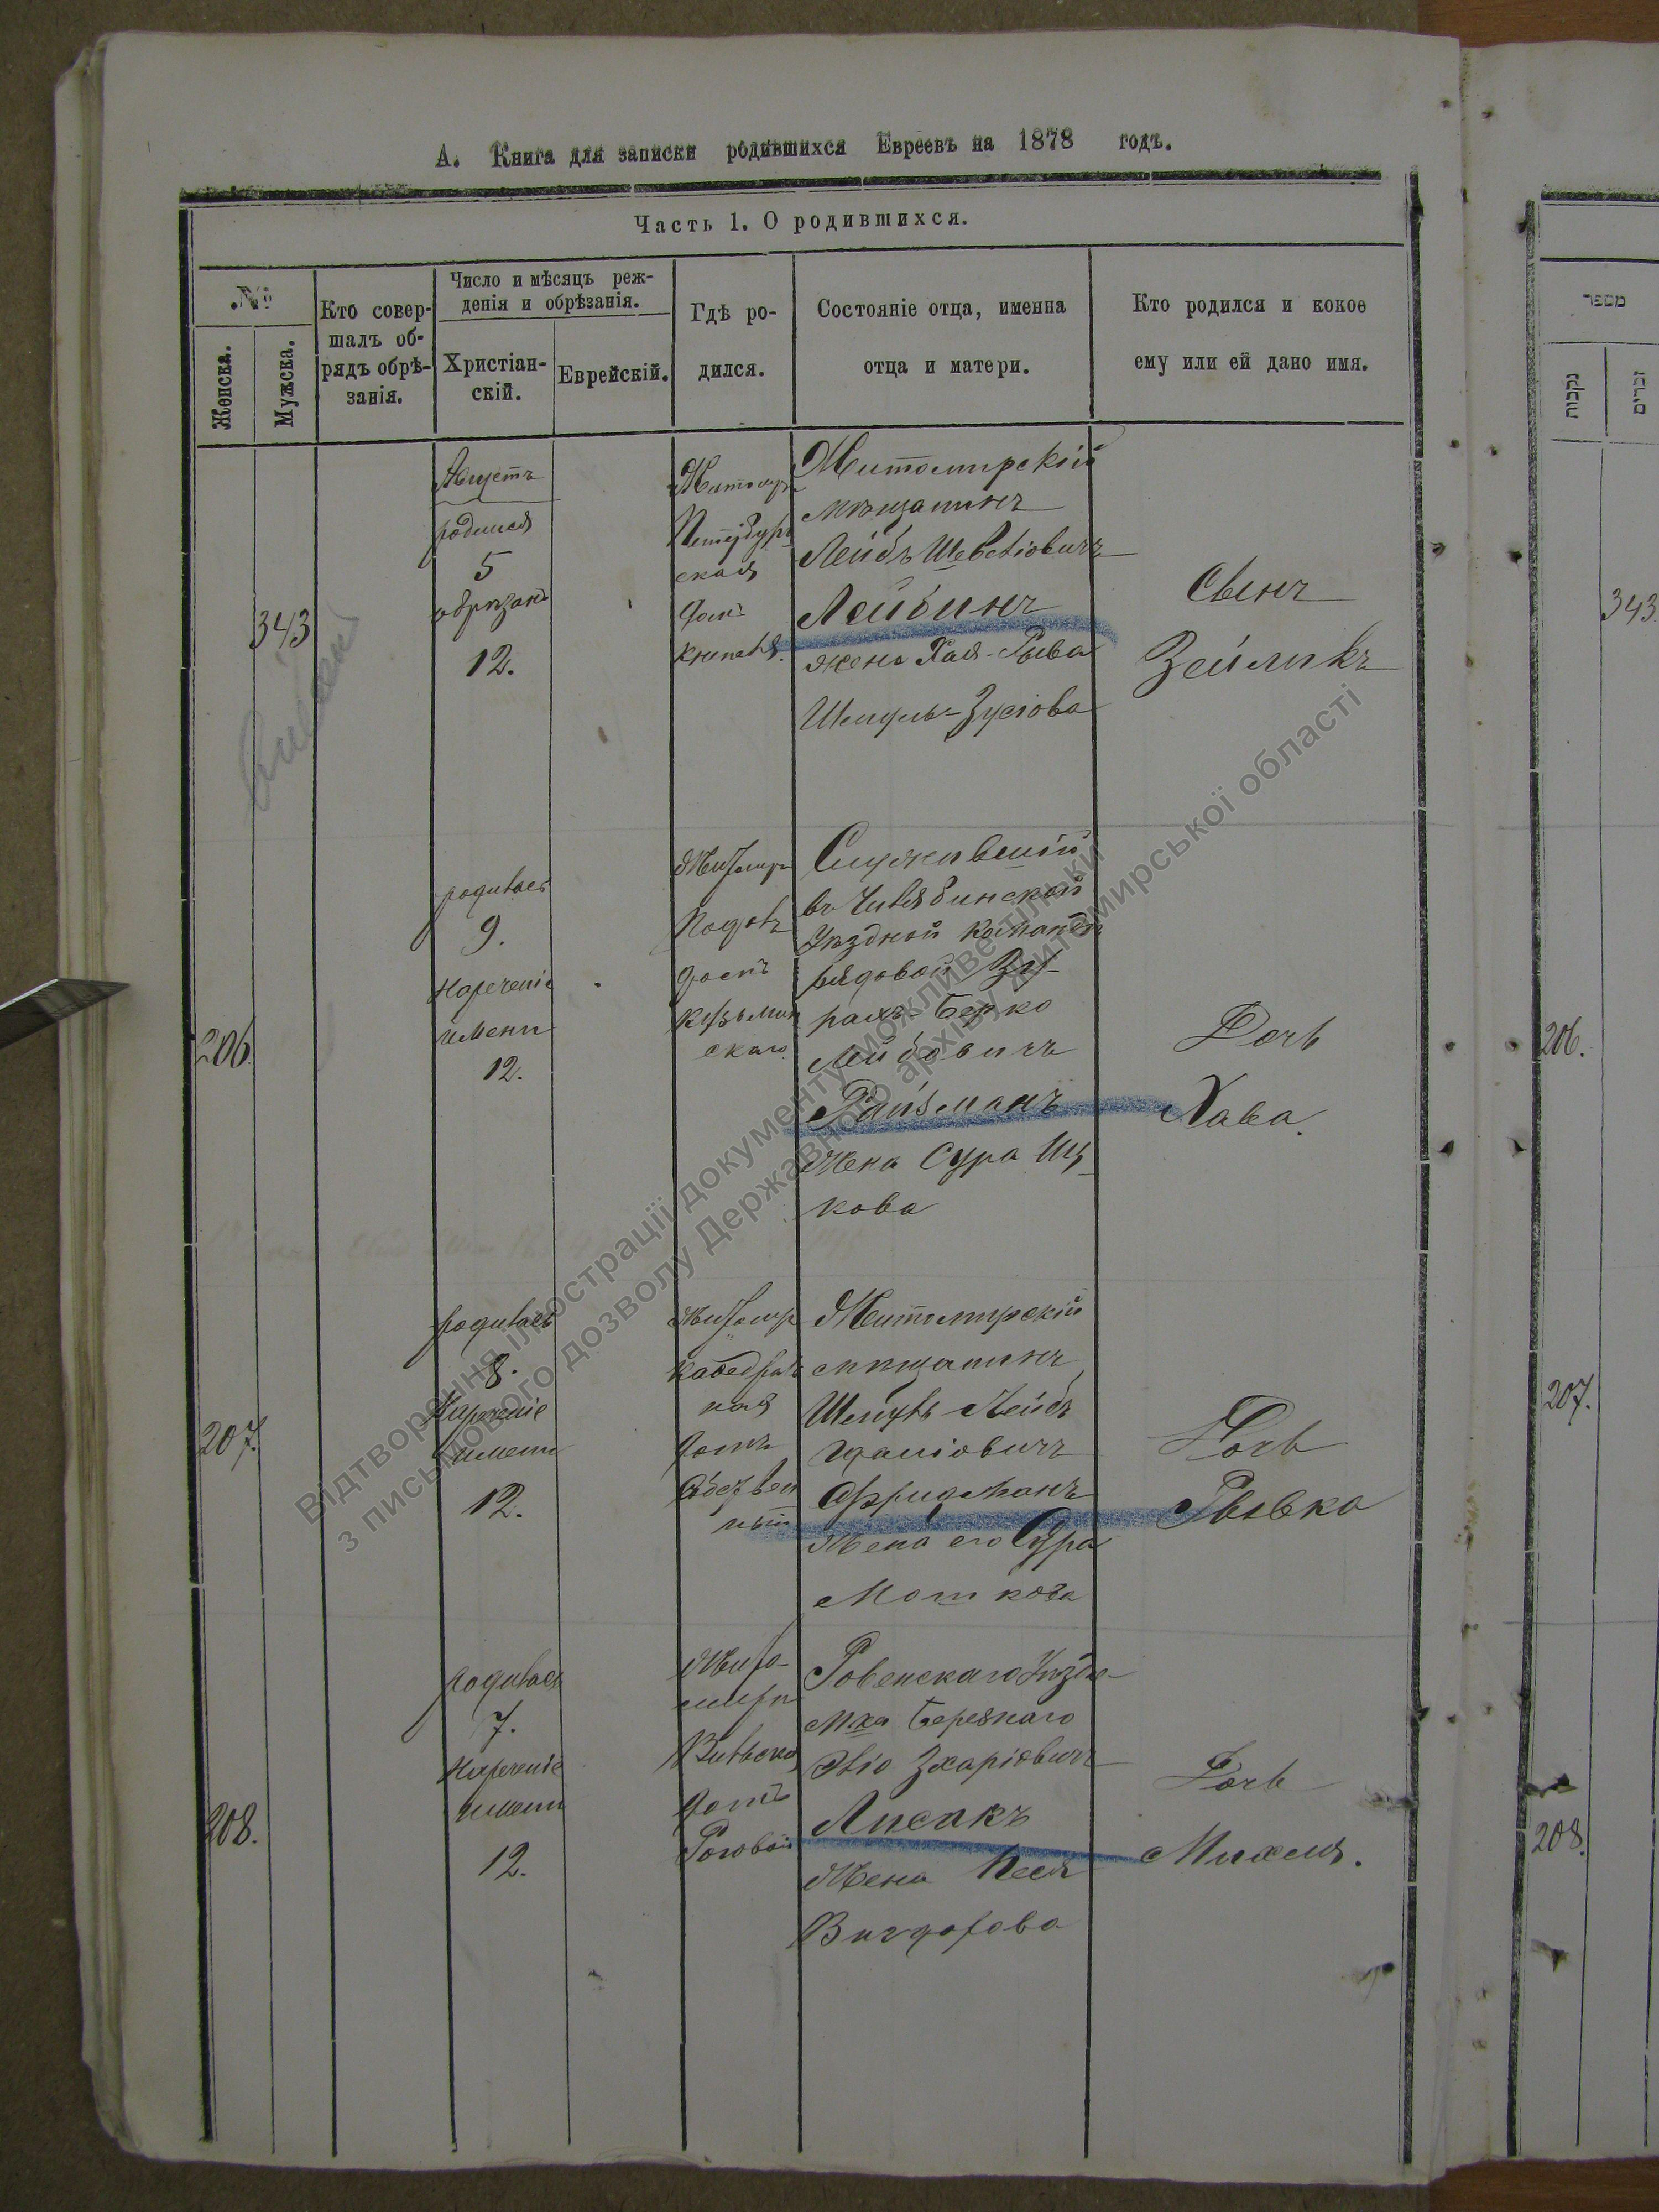 А. Книга для записки родившихся Евреевъ на 1878 годъ.
Часть 1. О родившихся.
№
Женска.
Мужска.
Кто совер-
шалъ об-
рядъ обрѣ-
занія.
Число и мѣсяцъ рож-
денія и обрѣзанія.
Христіан-
скій.
Еврейскій.
Гдѣ ро-
дился.
Состояніе отца, именна
отца и матери.
Кто родился и кокое
ему или ей дано имя.
343
Августъ
родился
5
обрѣзанъ
12.
Житомиръ
Петербург
ская
домъ
Житомирскій
мѣщанинъ
Лейбъ
Лейбинъ
жена Хая-Рыва
Шмуль-Зусіова
Сынъ
Зейликъ
206.
родилась
9.
Нареченіе
имени
12.
Житомиръ
домъ
Кузьмин
скаго
Служившій
въ Челябинской
Уѣздной Командѣ
рядовой Зу-
рахъ-Берко
Лейбовичъ
Райзманъ
Жена Сура Иц-
кова
Дочь
Хава.
207.
родилась
8.
Нареченіе
имени
12.
Житомир
Кафедраль
ная
домъ
Житомирскій
мѣщанинъ
Шмуль Лейбъ
Фридманъ
Жена его Сура
Мошкова
Дочь
Рывка
208.
родилась
7.
Нареченіе
имени
12.
Жито-
миръ
Вильская
домъ
Ровенскаго Уѣзда
Мка Березнаго
Лисакъ
Жена Песя
Вигдорова
Дочь
Михля.
מספר
נקבות
זכרים
343.
206.
207.
208.
Відтворення ілюстрації документу можливе тільки
з письмового дозволу Державного архіву Житомирської області